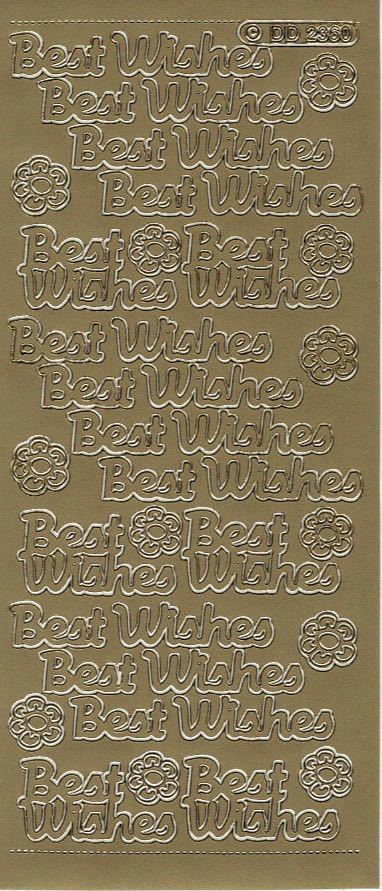 © DD 2360
Best Wishes
Best Wishes
Best Wishes
Best Wishes
Best Best
Wishes Wishes
Best Wishes
Best Wishes
Best Wishes
Best Wishes
Best Best
Wishes Wishes
Best Wishes
Best Wishes
Best Wishes
Best Best
Wishes Wishes